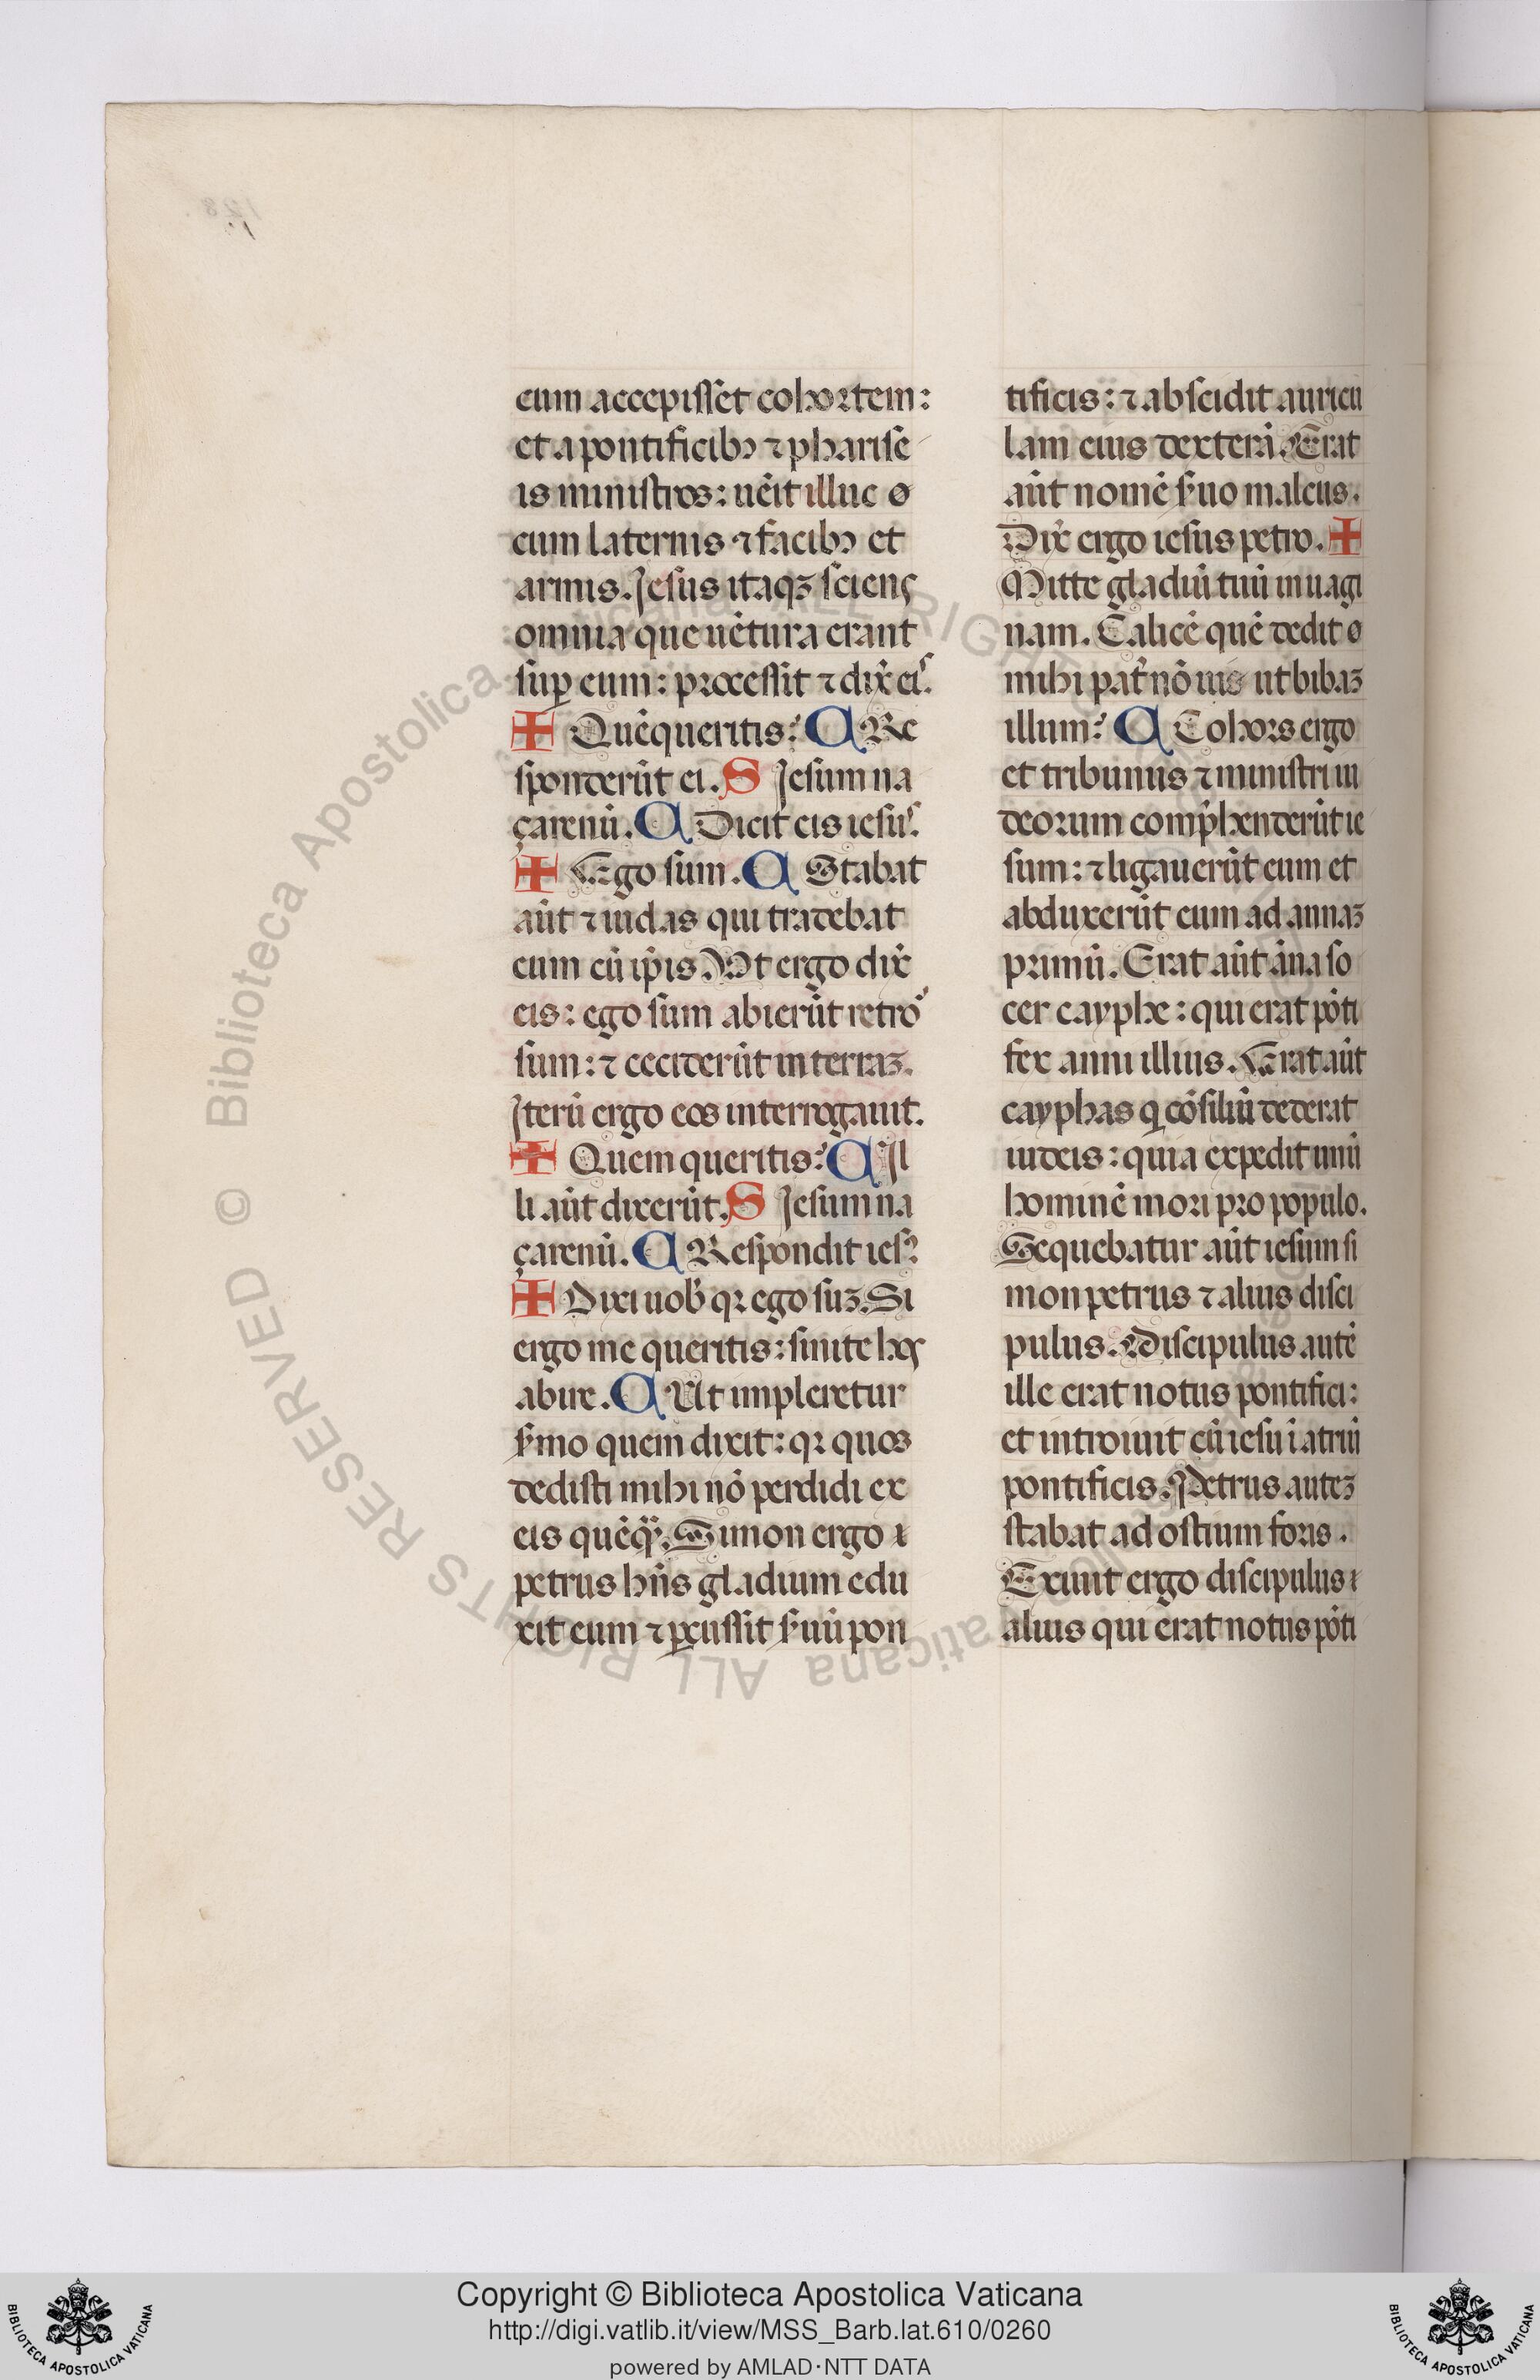 cum accepissēt cohortem:
et a pontificibꝫ ⁊ pharise
is ministros: uēit illuc ø
cum laternis ⁊ facibꝫ et
armis. Jesus itaqꝫ sciens
omnia que uētura erant
suꝑ eum: processit ⁊ dix̄ eis.
✠ Quē queritis? C Re
sponderūt ei. S Jesum na
çarenū. C Dicit eis iesus.
✠ Ego sum. C Stabat
aūt ⁊ iudas qui tradebat
eum cū ip̄is. Vt ergo dix̄
eis: ego sum abierūt retror
sum: ⁊ ceciderūt in terraꝫ.
Jterū ergo eos interrogauit.
✠ Quem queritis? C Il
li aūt dixerūt. S Jesum na
çarenū. C Respondit iesꝰ.
✠ Dixi uob̄ qꝛ ego suꝫ. Si
ergo me queritis: sinite hos
abire. C Ut impleretur
s̄mo quem dixit: qꝛ quos
dedisti mihi nō perdidi ex
eis quēqᷓ. Simon ergo ɪ
petrus hn̄s gladium edu
xit eum ⁊ ꝑcussit s̄uū pon
tificis: ⁊ abscidit auricu
lam eius dexterā. Erat
aūt nomē s̄uo malcus.
Dix̄ ergo iesus petro. ✠
Mitte gladiū tuū in uagi
nam. Calicē quē dedit ø
mihi pat̄ nō uis ut bibaꝫ
illum? C Cohors ergo
et tribunus ⁊ ministri iu
deorum comp̄henderūt ie
sum: ⁊ ligauerūt eum et
abduxerūt eum ad annaꝫ
primū. Erat aūt āna so
cer cayphe: qui erat pōti
fex anni illius. Erat aūt
cayphas q̇ cōsiliū dederat
iudeis: quia expedit unū
hominē mori pro populo.
Sequebatur aūt iesum si
mon petrus ⁊ alius disci
pulus. Discipulus autē
ille erat notus pontifici:
et introiuit cū iesu ī atriū
pontificis. Petrus auteꝫ
stabat ad ostium foris.
Exiuit ergo discipulus ɪ
alius qui erat notus pōti
© Biblioteca Apostolica Vaticana ALL RIGHTS RESERVED
Copyright © Biblioteca Apostolica Vaticana
http://digi.vatlib.it/view/MSS_Barb.lat.610/0260
powered by AMLAD·NTT DATA
BIBLIOTECA APOSTOLICA VATICANA
BIBLIOTECA APOSTOLICA VATICANA